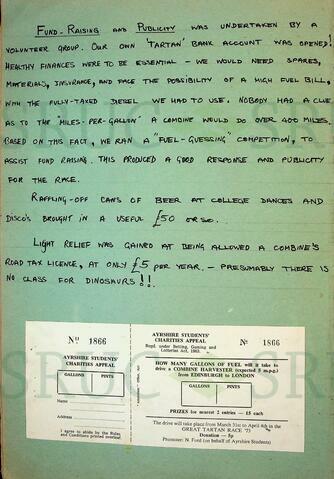 FUND-RAISING AND PUBLICITY WAS UNDERTAKEN BY A
VOLUNTEER GROUP. OUR OWN 'TARTAN' BANK ACCOUNT WAS OPENED!
HEALTHY FINANCES WERE TO BE ESSENTIAL - WE WOULD NEED SPARES,
MATERIALS, INSURANCE, AND FACE THE POSSIBILITY OF A HIGH FUEL BILL,
WITH THE FULLY-TAXED DIESEL WE HAD TO USE. NOBODY HAD A CLUE
AS TO THE 'MILES-PER-GALLON' A COMBINE WOULD DO OVER 400 MILES.
BASED ON THIS FACT, WE RAN A "FUEL-GUESSING" COMPETITION, TO
ASSIST FUND RAISING. THIS PRODUCED A GOOD RESPONSE AND PUBLICITY
FOR THE RACE.
RAFFLING-OFF CANS OF BEER AT COLLEGE DANCES AND
DISCO'S BROUGHT IN A USEFUL £50 OR SO.
LIGHT RELIEF WAS GAINED AT BEING ALLOWED A COMBINE'S
ROAD TAX LICENCE, AT ONLY £5 PER YEAR. - PRESUMABLY THERE IS
NO CLASS FOR DINOSAURS!!
No 1866
AYRSHIRE STUDENTS'
CHARITIES APPEAL
GALLONS PINTS
Name
Address
I agree to abide by the Rules
and Conditions printed overleaf.
AYRSHIRE STUDENTS'
CHARITIES APPEAL
Regd. under Betting, Gaming and
Lotteries Act, 1963.
No 1866
HOW MANY GALLONS OF FUEL will it take to
drive a COMBINE HARVESTER (expected 5 m.p.g.)
from EDINBURGH to LONDON
GALLONS PINTS
PRIZES for nearest 2 entries — £5 each
The drive will take place from March 31st to April 4th in the
GREAT TARTAN RACE '73
Donation — 5p
Promoter: N. Ford (on behalf of Ayrshire Students)
SRUC
SRUC